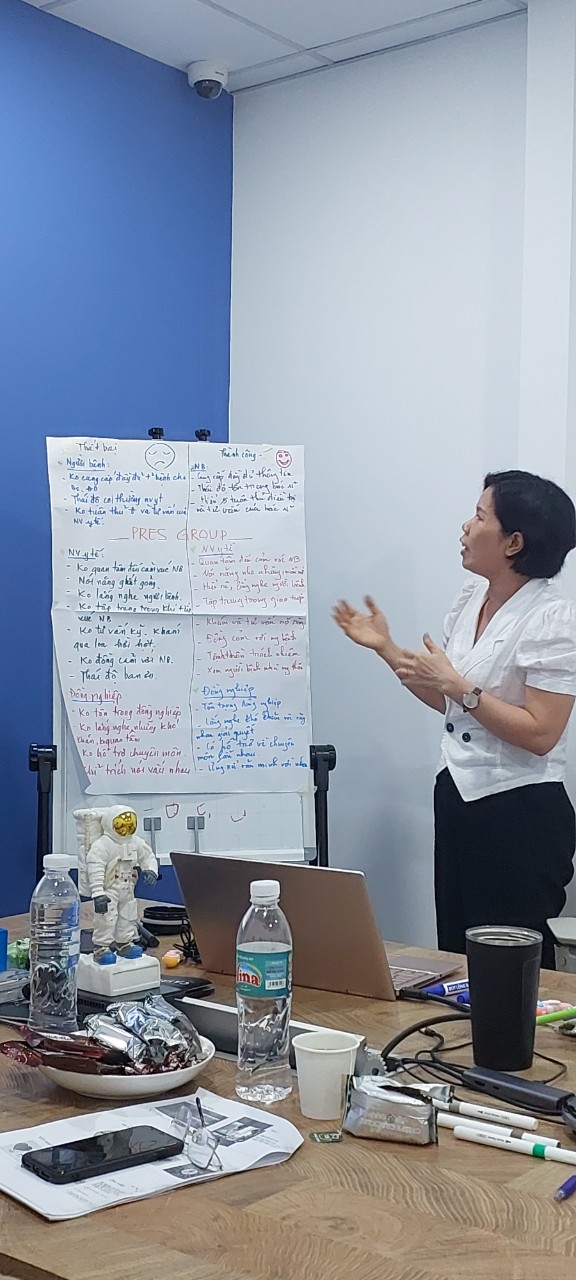 Thất bại
Người bệnh:
- Ko cung cấp đầy đủ t² bệnh cho
BS, ĐD
- Thái độ coi thường nvyt
- Ko tuân thủ đt và tư vấn của
NV y tế.
Thành công
NB:
- Cung cấp đầy đủ thông tin
- Thái độ tôn trọng bác sĩ
- tuân thủ điều trị
và tư vấn của bác sĩ
PRES GROUP
NV y tế:
- Ko quan tâm đến cảm xúc NB
- Nói năng gắt gỏng
- Ko lắng nghe người bệnh.
- Ko tập trung trong khi
NB.
- Ko tư vấn kỹ. Khám
qua loa hời hợt.
- Ko đồng cảm với NB.
- Thái độ ban ơn.
NV y tế
- Quan tâm đến cảm xúc NB
- Nói năng nhẹ nhàng
- lắng nghe người bệnh
- Tập trung trong giao tiếp
- Khám và tư vấn
- Đồng cảm với ng bệnh
- Tinh thần trách nhiệm
- Xem người bệnh như ng thân
Đồng nghiệp
- Ko tôn trọng đồng nghiệp
- Ko lắng nghe, những khó
khăn, ko quan tâm
- Ko hỗ trợ chuyên môn
chỉ trích nói xấu nhau
Đồng nghiệp
- Tôn trọng đồng nghiệp
- Lắng nghe khó khăn và cùng
nhau giải quyết
- Có hỗ trợ về chuyên
môn lẫn nhau
- Ứng xử văn minh với nhau
ina